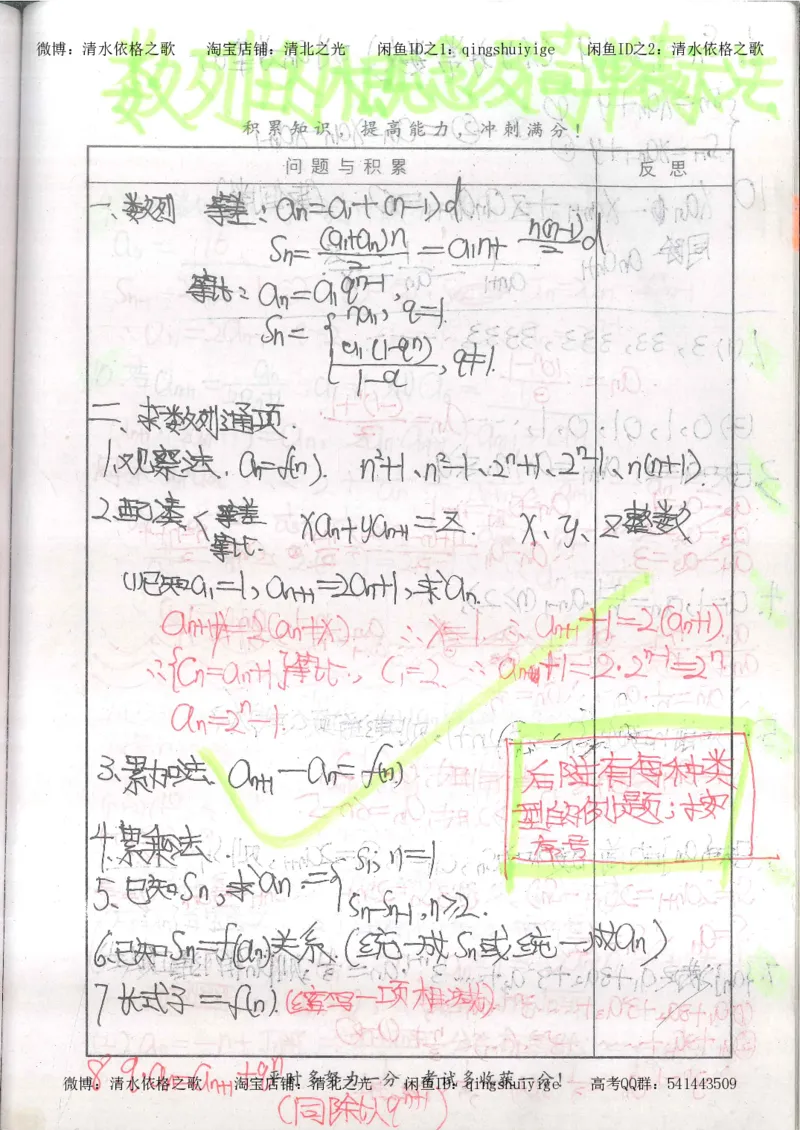 微博:清水依格之歌 淘宝店铺:清北之光 闲鱼ID之1:qingshuiyige 闲鱼ID之2:清水依格之歌
积累知识,提高能力,冲刺满分!
问题与积累 反思
一、数列 等差:an=a1+(n-1)d
Sn=(a1+an)n/2=a1n+n(n-1)/2 d
等比:an=a1q^(n-1),
Sn={na1, q=1.
a1(1-q^n)/(1-q), q≠1.
二、求数列通项
1.观察法. an=f(n). n²+1、n²-1、2^n+1、2^n-1、n(n+1).
2.配凑< 等差 xan+yan+1=z. x、y、z整数
等比.
(1)已知a1=1,an+1=2an+1,求an.
an+1+x=2(an+x) ∴x=1. ∴an+1+1=2(an+1).
∴{Cn=an+1}等比, C1=2 ∴an+1=2·2^(n-1)=2^n
an=2^n-1.
3、累加法、an+1-an=f(n)
后附有每种类
型的例题;
序号
4.累乘法
5、已知Sn,求an={S1, n=1
Sn-Sn-1, n≥2.
6.已知Sn=f(an)关系.(统一成Sn或统一成an)
7 长式子=f(n).(缩写一项相减)
8 q·an=an+1+q^n
(同除以q^(n+1))
平时多努力一分,考试多收获一分!
微博:清水依格之歌 淘宝店铺:清北之光 闲鱼ID:qingshuiyige 高考QQ群:541443509